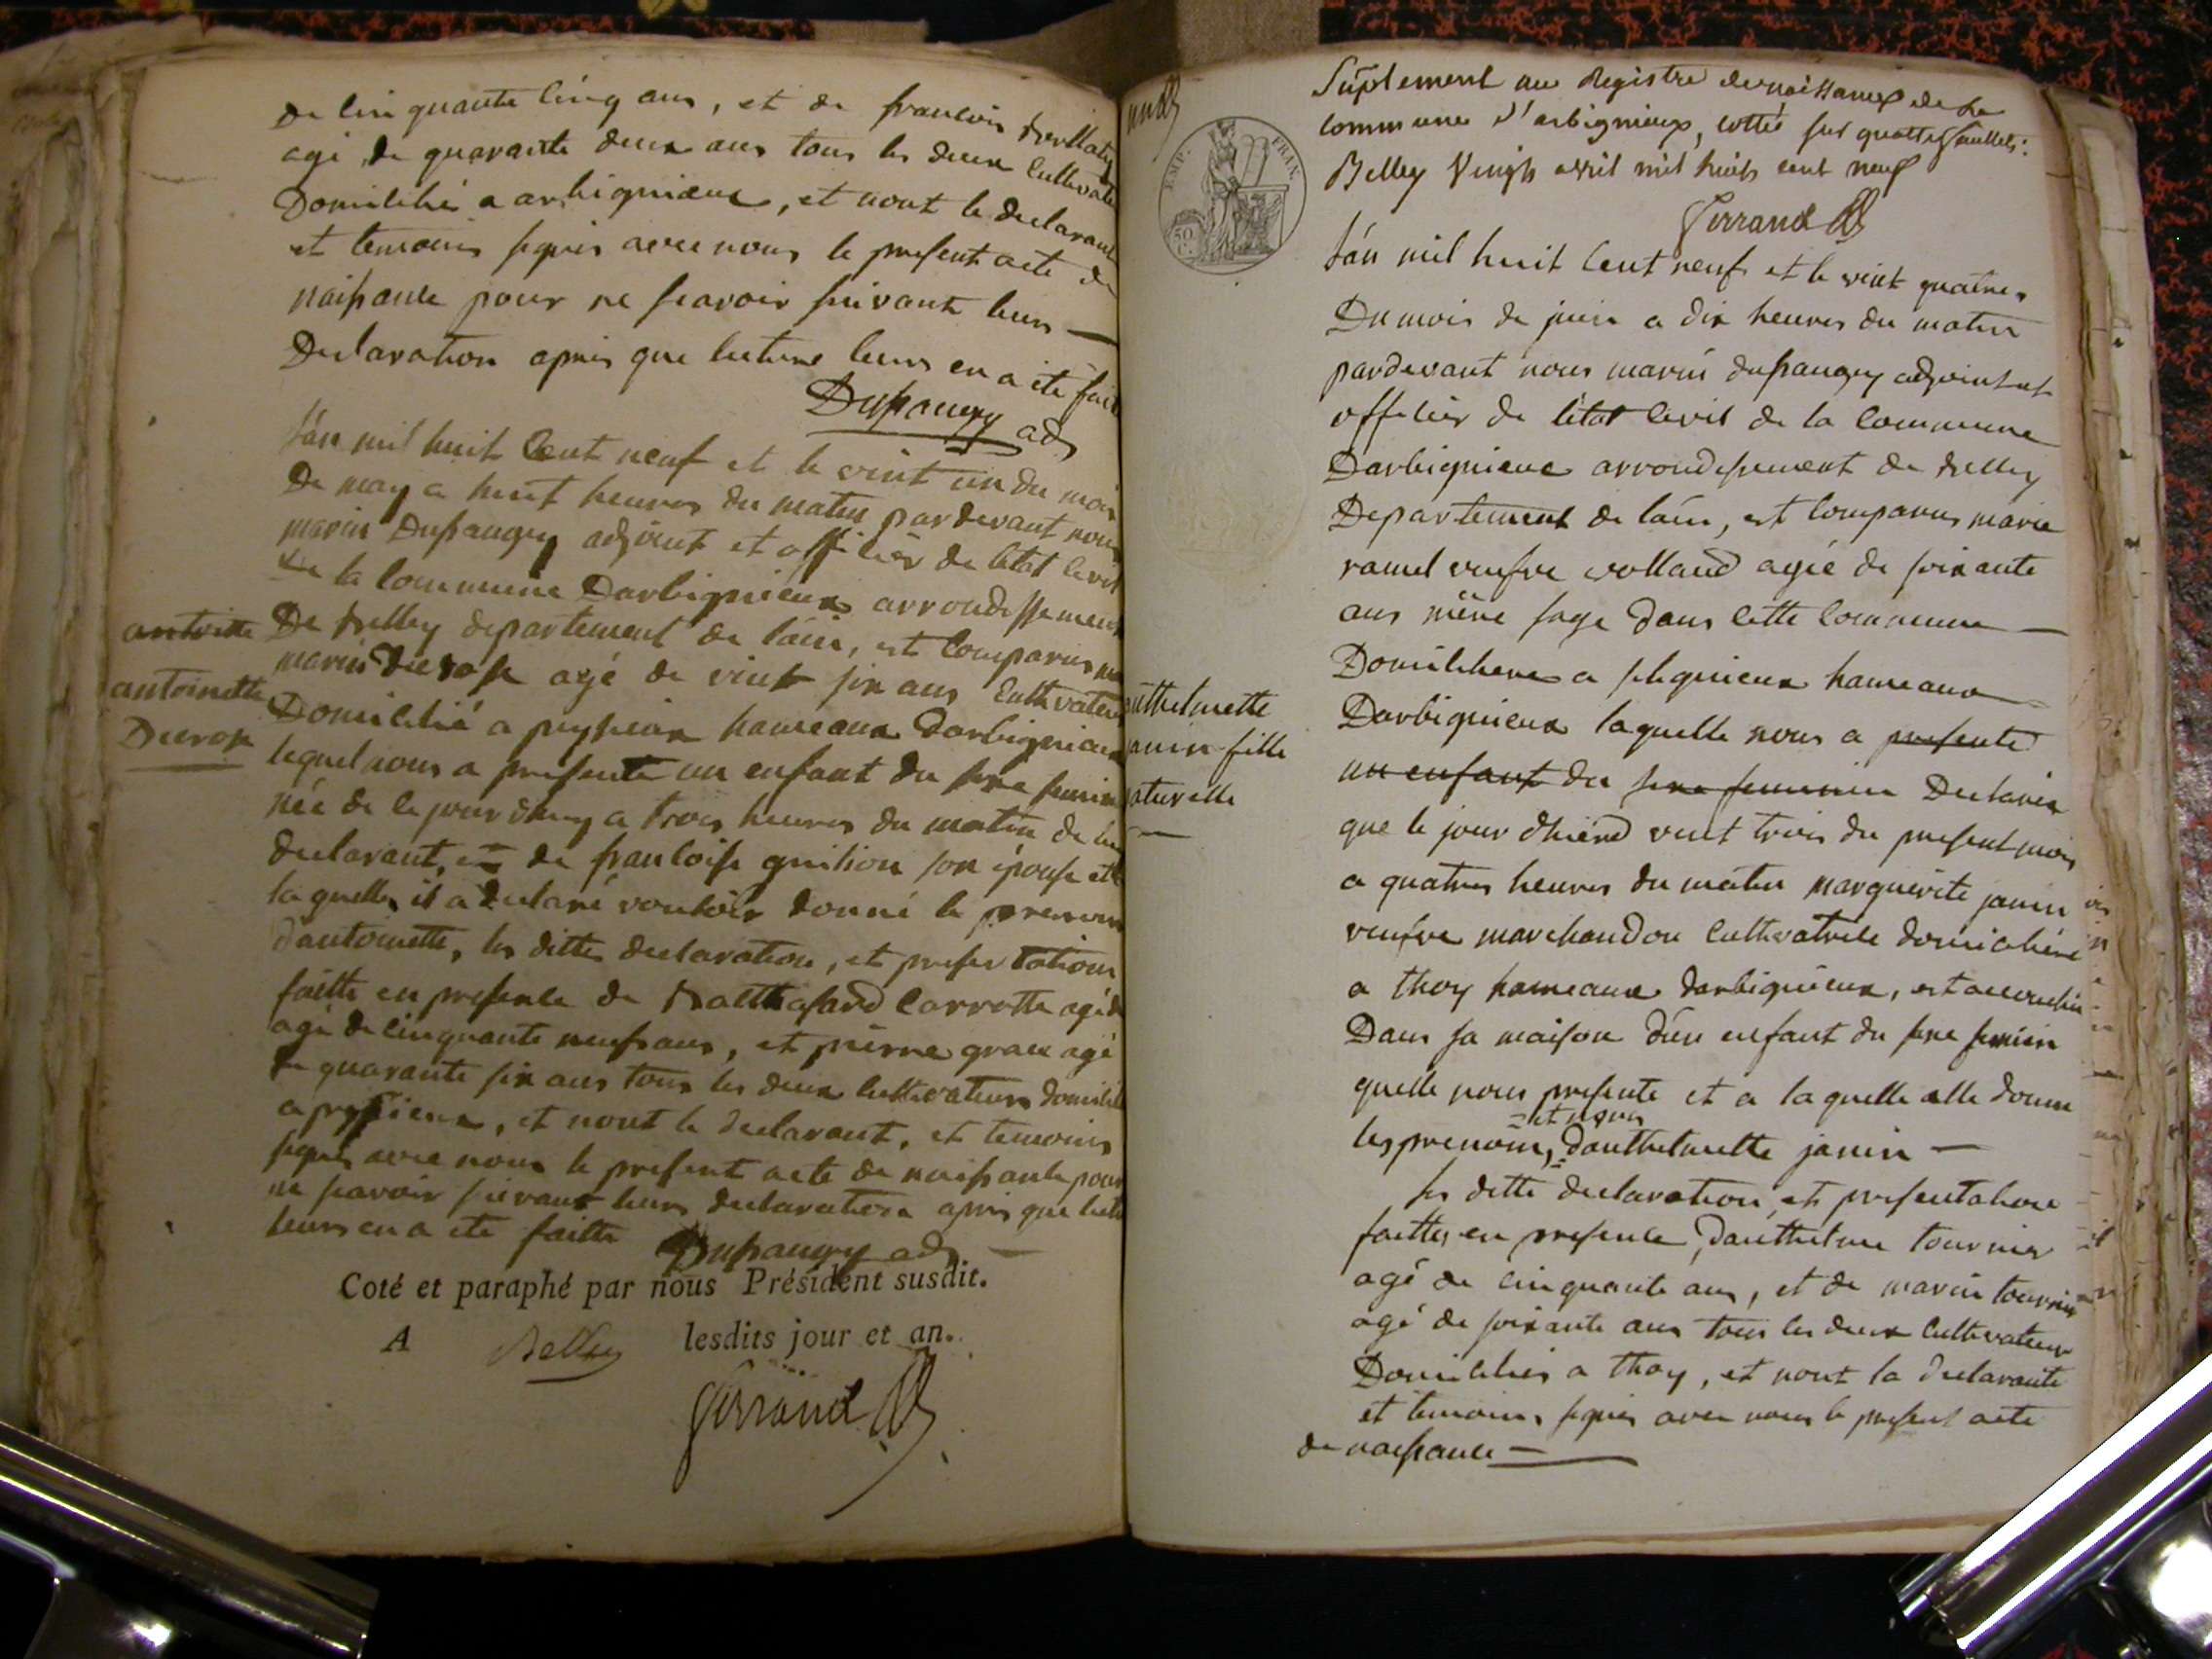 De cinquante cinq ans, et de francois
agé de quarante deux ans tous les deux Cultivate
Domicilié a arbignieux, et nont le declarant
et temoins signés avec nous le present acte de
naissance pour ne scavoir suivant leurs
Declaration apres que lecture leurs en a ete fait
Dupaugey adj
l'án mil huit Cent neuf et le vint un du mois
De may a huit heures du matin pardevant nous
marin Dupaugey adjoint et officiér de létat civil
De la Commune Darbignieux arrondissement
antoitte
De belley departement de láin, est Comparus
marin Ducrost agé de vint six ans Cultivateur
antoinette
Ducrost
Domicilié a peyzieux hameaux Darbignieux
lequel nous a presenté un enfant du sexe feminin
née de ce jour dhuy a trois heures du matin de lui
declarant, et de francoise guition son épouse et a
laquelle, il a declaré vouloir donné le prenom
d'antoinette, les dittes declaration, et presentations
faitte en presence de Balthasard Carrotte agé de
agé de cinquante neuf ans, et pierre graex agé
de quarante six ans tous les deux Cultivateurs domicilié
a peyzieux, et nont le declarant, et temoins
signés avec nous le present acte de naissance pour
ne scavoir suivant leurs declaration apres que lect
leurs en a ete faitte Dupaugey adj
Coté et paraphé par nous Président susdit.
A Belley lesdits jour et an.
Gerrand
Suplement au Registre de naissances de la
commune d'arbignieux, cottés sur quattes feuillets:
Belley Vingt avril mil huit cent neuf
Gerrand
EMP. FRAN.
50 C.
l'án mil huit Cent neuf et le vint quatres
Du mois de juin a dix heures du matin
pardevant nous marin dupaugey adjoint et
officiér de létat Civil de la Commune
Darbignieux arrondissement de belley
Departement de láin, est Comparus marie
ramel veufve vollaud agée de soixante
ans mére sage dans cette Commune
Domiciliere a slignieux hameaux
authelmette
janin fille
naturelle
Darbignieux laquelle nous a presenté
un enfant du sexe feminin Declarée
que le jour dhiérd vint trois du present mois
a quatres heures du matin marguerite janin
veufve marchandon Cultivatrice domiciliéré
a thoy hameaux darbignieux, est accouchée
Dans sa maison d'un enfant du sexe feminin
quelle nous presente et a laquelle elle donne
= et nom
les prenom,= dauthelmette janin
les ditte declaration, et presentation
faittes en presence, dauthelme tournier
agé de cinquante ans, et de marin tournier
agé de soixante ans tous les deux Cultivateurs
Domiciliés a thoy, et nont la declarante
et temoins signés avec nous le present acte
de naissance